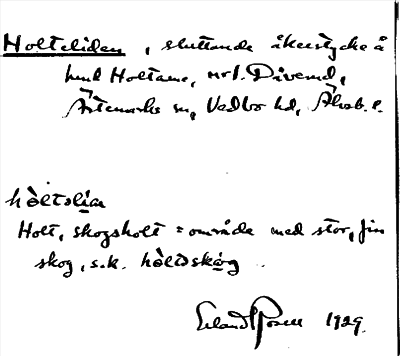 Holteliden, sluttande åkerstycke å
hmd Holtane, nr 1. Diverud,
Ärtemarks sn, Vedbo hd, Älvsb. l.
hòltəlia
Holt, skogsholt = område med stor, fin
skog, s.k. hòltskog.
Erland Rosell 1929.